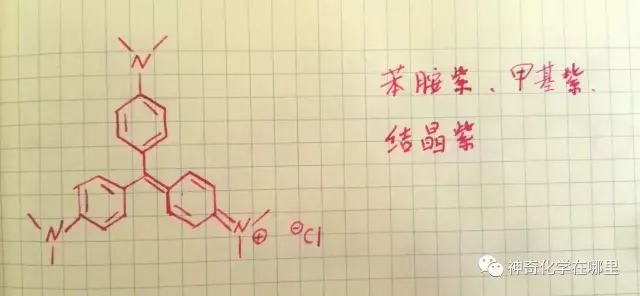 N
苯胺紫、甲基紫.
结晶紫
N
N⊕
⊖Cl
神奇化学在哪里